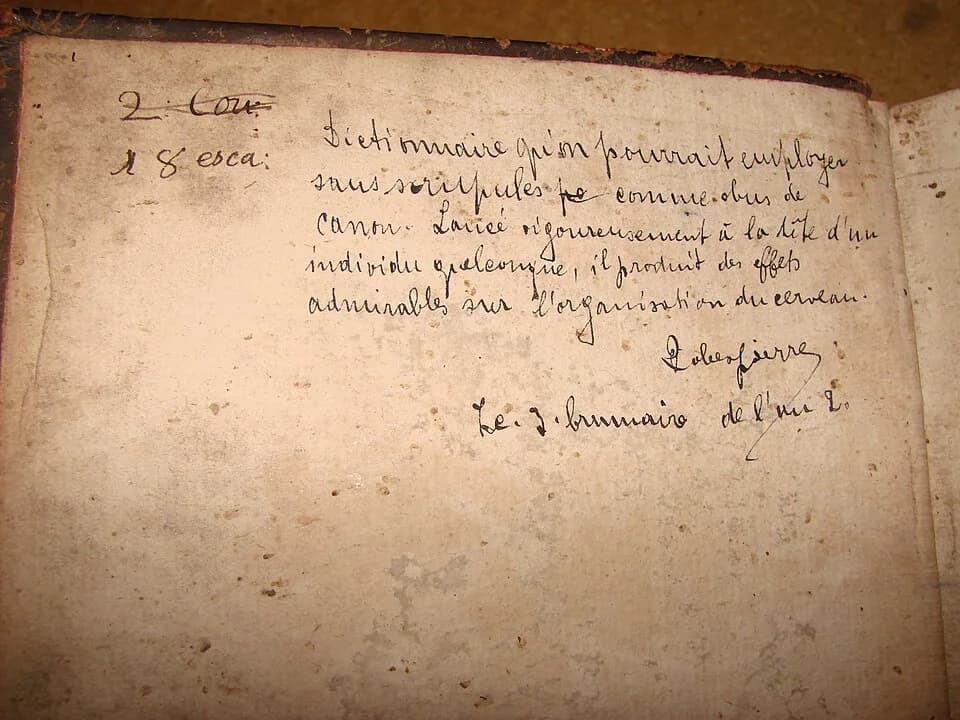 2 Cou.
1 8 esca:
Dictionnaire qu'on pourrait employer
sans scrupules pe comme obus de
canon. Lancé vigoureusement à la tête d'un
individu quelconque, il produit des effets
admirables sur l'organisation du cerveau.
Robespierre
Le. 3. brumaire de l'an 2.